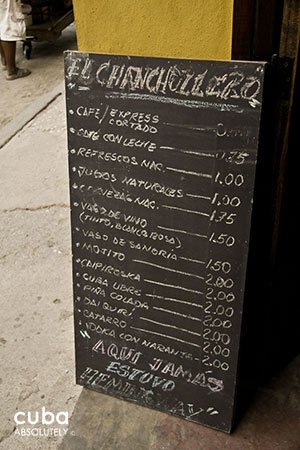 "EL CHANCHULLERO"
• CAFÉ / EXPRESS
CORTADO
• CAFÉ CON LECHE 0.75
• REFRESCOS NAC. 1.00
• JUGOS NATURALES 1.00
• CERVEZAS NAC. 1.75
• VASO DE VINO
(TINTO, BLANCO, ROSA) 1.50
• VASO DE SANGRIA 1.50
• MOJITO 2.00
• CAIPIROSKA 2.00
• CUBA LIBRE 2.00
• PIÑA COLADA 2.00
• DAIQUIRÍ 2.00
• CATARRO 2.00
• VODKA CON NARANJA 2.00
"AQUI JAMAS
ESTUVO
HEMINGWAY"
cuba
ABSOLUTELY